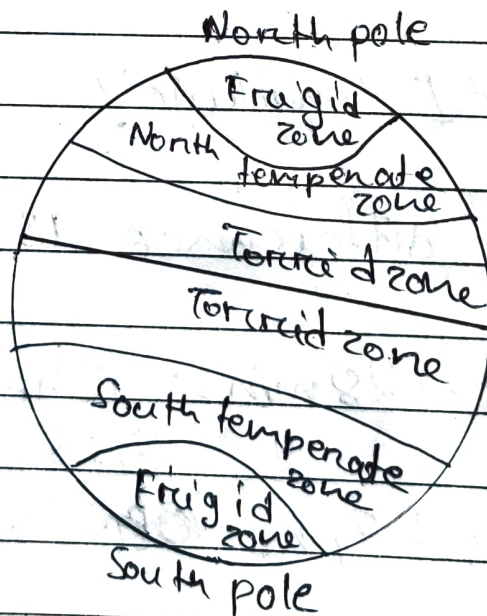 North pole
Frigid
zone
North
temperate
zone
Torrid zone
Torrid zone
South temperate
zone
Frigid
zone
South pole